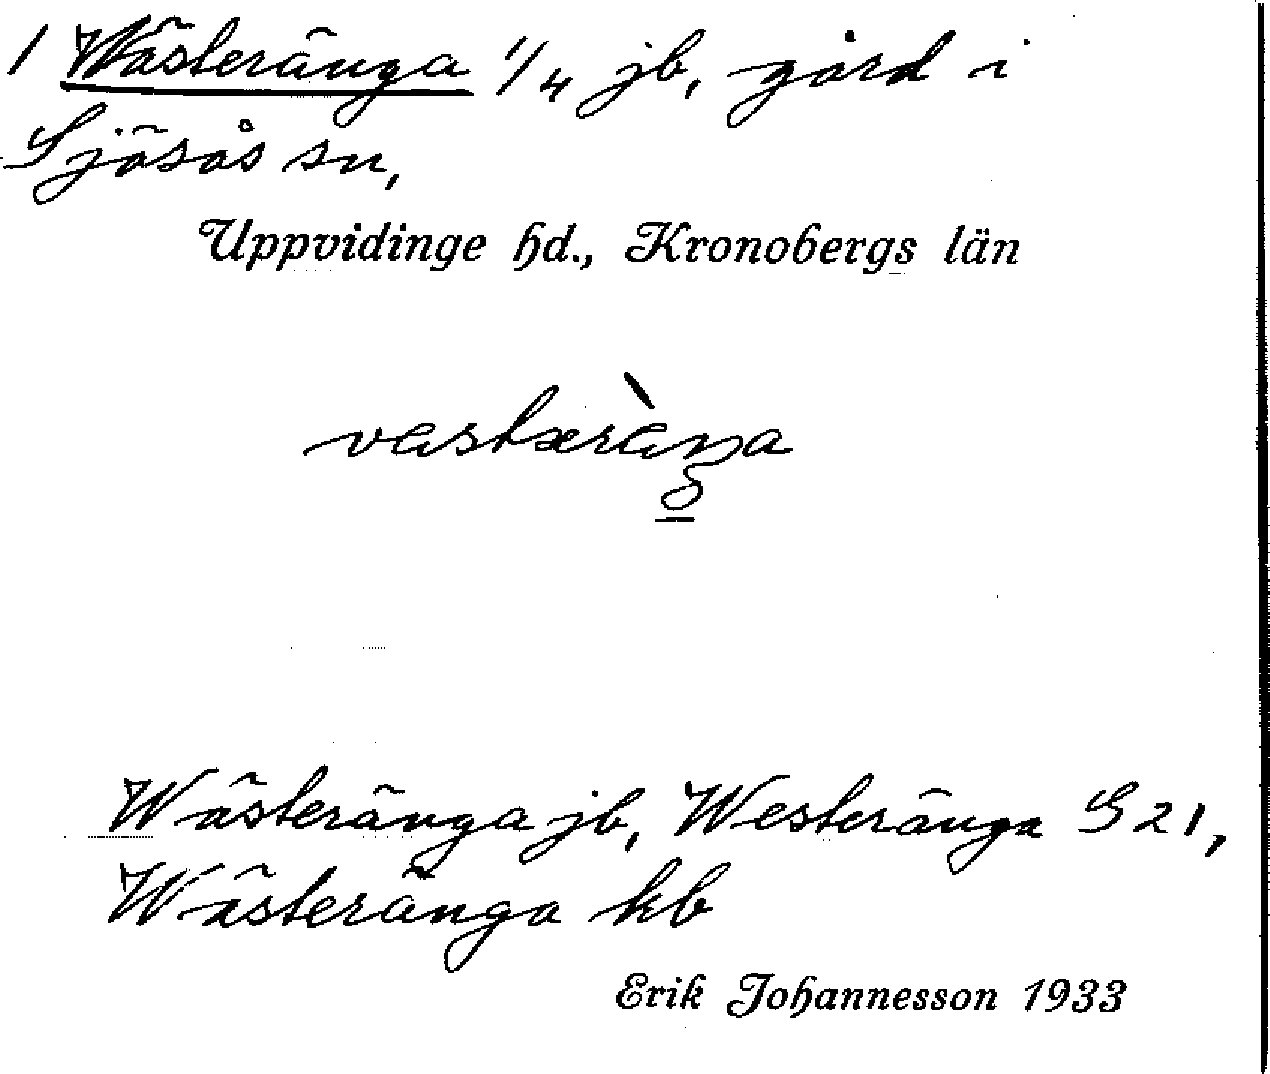 1 Wästeränga 1/4 jb, gård i
Sjösås sn,
Uppvidinge hd., Kronobergs län
Wästeränga jb, Westeränga S 21,
Wästeränga kb
Erik Johannesson 1933